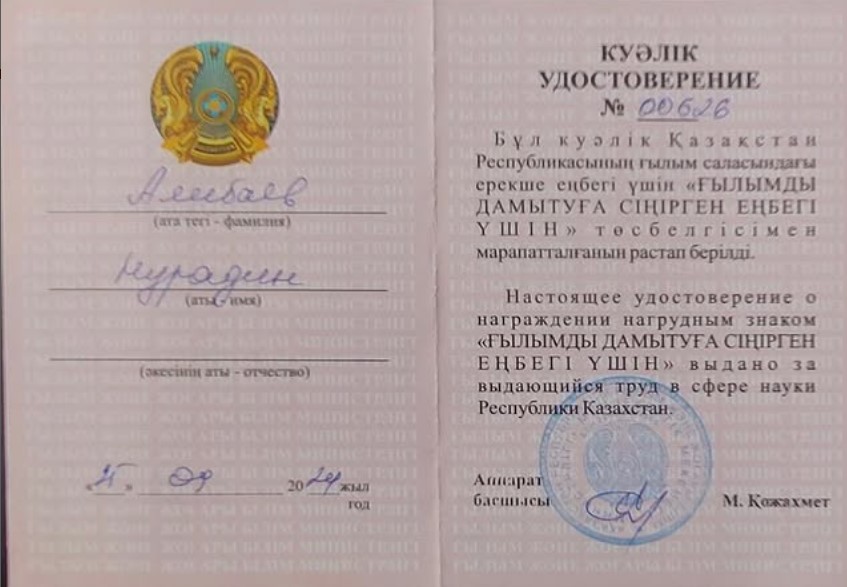 Алибаев
(ата тегі - фамилия)
Нурадин
(аты - имя)
(әкесінің аты - отчество)
« » 09 2024 жыл
год
КУӘЛІК
УДОСТОВЕРЕНИЕ
№ 00626
Бұл куәлік Қазақстан
Республикасының ғылым саласындағы
ерекше еңбегі үшін «ҒЫЛЫМДЫ
ДАМЫТУҒА СІҢІРГЕН ЕҢБЕГІ
ҮШІН» төсбелгісімен
марапатталғанын растап берілді.
Настоящее удостоверение о
награждении нагрудным знаком
«ҒЫЛЫМДЫ ДАМЫТУҒА СІҢІРГЕН
ЕҢБЕГІ ҮШІН» выдано за
выдающийся труд в сфере науки
Республики Казахстан.
Аппарат
басшысы
М. Қожахмет